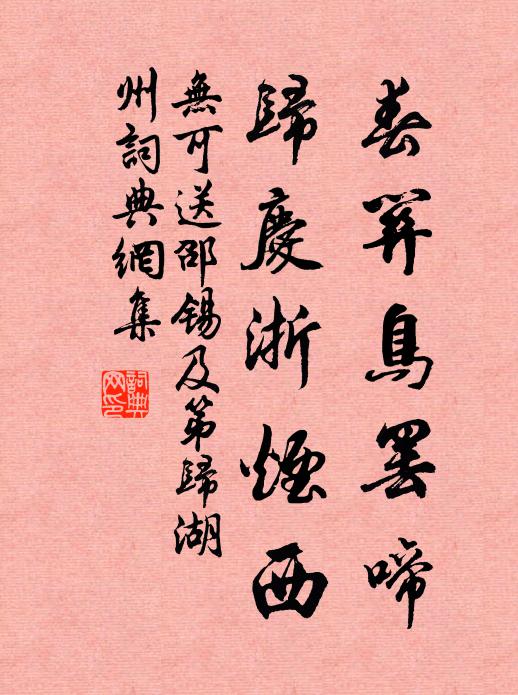 春關鳥罷啼
歸慶浙煙西
無可送邵錫及第歸湖
州詞典網集
詞典网印